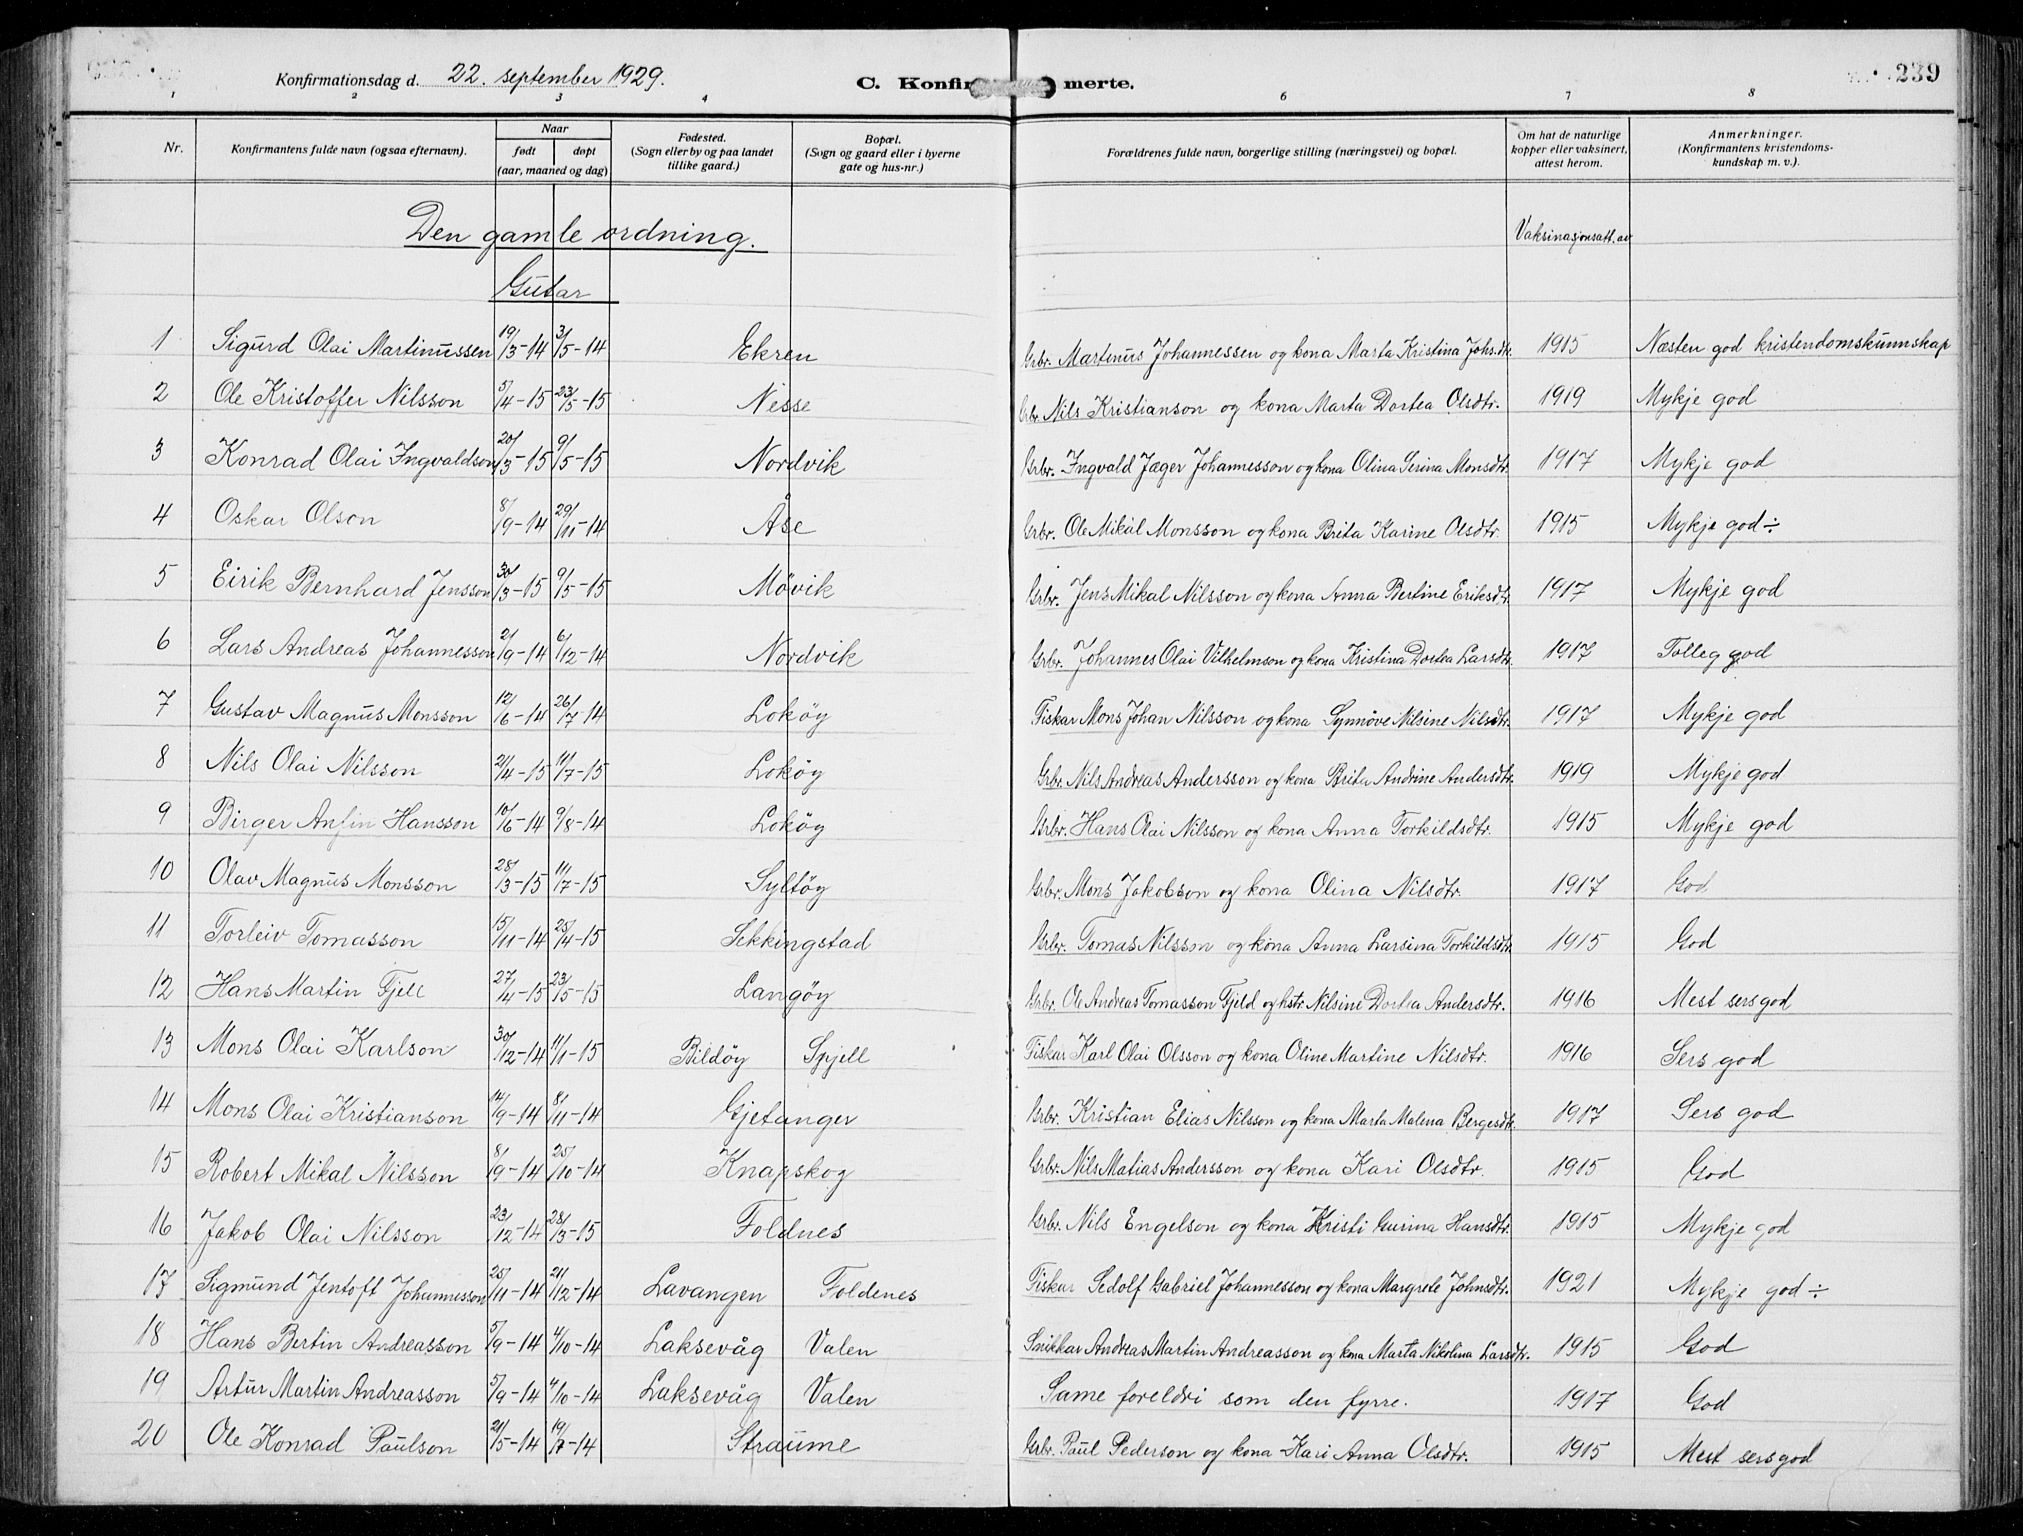 Konfirmationsdag d. 22. september 1929. C. Konfir merte. 239
1 2 3 4 6 7 8
Nr. Konfirmantens fulde navn (ogsaa efternavn). Naar født døpt (aar, maaned og dag) Fødested. (Sogn eller by og paa landet tillike gaard.) Bopæl. (Sogn og gaard eller i byerne gate og hus-nr.) Forældrenes fulde navn, borgerlige stilling (næringsvei) og bopæl. Om hat de naturlige kopper eller vaksinert, attest herom. Anmerkninger. (Konfirmantens kristendoms-kundskap m. v.).
Den gamle ordning. Vaksinasjonsatt. av
Gutar
1 Sigurd Olai Martinussen 19/3-14 3/5-14 Ekren Grbr. Martinus Johannessen og kona Marta Kristina Johs.dtr. 1915 Næsten god kristendomskunnskap
2 Ole Kristoffer Nilsson 5/4-15 23/5-15 Nesse Grbr. Nils Kristianson og kona Marta Dortea Olsdtr. 1919 Mykje god
3 Konrad Olai Ingvaldson 20/3-15 9/5-15 Nordvik Grbr. Ingvald Jæger Johannesson og kona Olina Serina Monsdtr. 1917 Mykje god
4 Oskar Olson 8/9-14 29/11-14 Åse Grbr. Ole Mikal Monsson og kona Brita Karine Olsdtr. 1915 Mykje god ÷
5 Eirik Bernhard Jensson 30/3-15 9/5-15 Mövik Grbr. Jens Mikal Nilsson og kona Anna Bertine Eriksdtr. 1917 Mykje god
6 Lars Andreas Johannesson 21/9-14 6/12-14 Nordvik Grbr. Johannes Olai Vilhelmson og kona Kristina Dortea Larsdtr. 1917 Tolleg god
7 Gustav Magnus Monsson 12/6-14 26/7-14 Loköy Fiskar Mons Johan Nilsson og kona Synnöve Nilsine Nilsdtr. 1917 Mykje god
8 Nils Olai Nilsson 21/4-15 11/7-15 Loköy Grbr. Nils Andreas Andersson og kona Brita Andrine Andersdtr. 1919 Mykje god
9 Birger Anfin Hansson 10/6-14 9/8-14 Loköy Grbr. Hans Olai Nilsson og kona Anna Torkildsdtr. 1915 Mykje god
10 Olav Magnus Monsson 28/3-15 11/7-15 Syltöy Grbr. Mons Jakobson og kona Olina Nilsdtr. 1917 God
11 Torleiv Tomasson 15/11-14 25/4-15 Sekkingstad Grbr. Tomas Nilsson og kona Anna Larsina Torkildsdtr. 1915 God
12 Hans Martin Fjell 27/4-15 23/5-15 Langöy Grbr. Ole Andreas Tomasson Fjeld og hstr. Nilsine Dortea Andersdtr. 1916 Mest sers god
13 Mons Olai Karlson 30/12-14 11/1-15 Bildöy Spjell Fiskar Karl Olai Olsson og kona Oline Martine Nilsdtr. 1916 Sers god
14 Mons Olai Kristianson 14/9-14 8/11-14 Gjetanger Grbr. Kristian Elias Nilsson og kona Marta Malena Bergesdtr. 1917 Sers god
15 Robert Mikal Nilsson 8/9-14 25/10-14 Knapskog Grbr. Nils Matias Andersson og kona Kari Olsdtr. 1915 God
16 Jakob Olai Nilsson 23/12-14 28/3-15 Foldnes Grbr. Nils Engelson og kona Kristi Gurina Hansdtr. 1915 Mykje god
17 Sigmund Jentoft Johannesson 25/11-14 21/12-14 Lavangen Foldenes Fiskar Sedolf Gabriel Johannesson og kona Margrete Johnsdtr. 1921 Mykje god ÷
18 Hans Bertin Andreasson 5/9-14 4/10-14 Laksevåg Valen Snikkar Andreas Martin Andreasson og kona Marta Nikolina Larsdtr. 1915 God
19 Artur Martin Andreasson 5/9-14 4/10-14 Laksevåg Valen Same foreldri som den fyrre. 1917 God
20 Ole Konrad Paulson 21/5-14 19/7-14 Straume Grbr. Paul Pederson og kona Kari Anna Olsdtr. 1915 Mest sers god